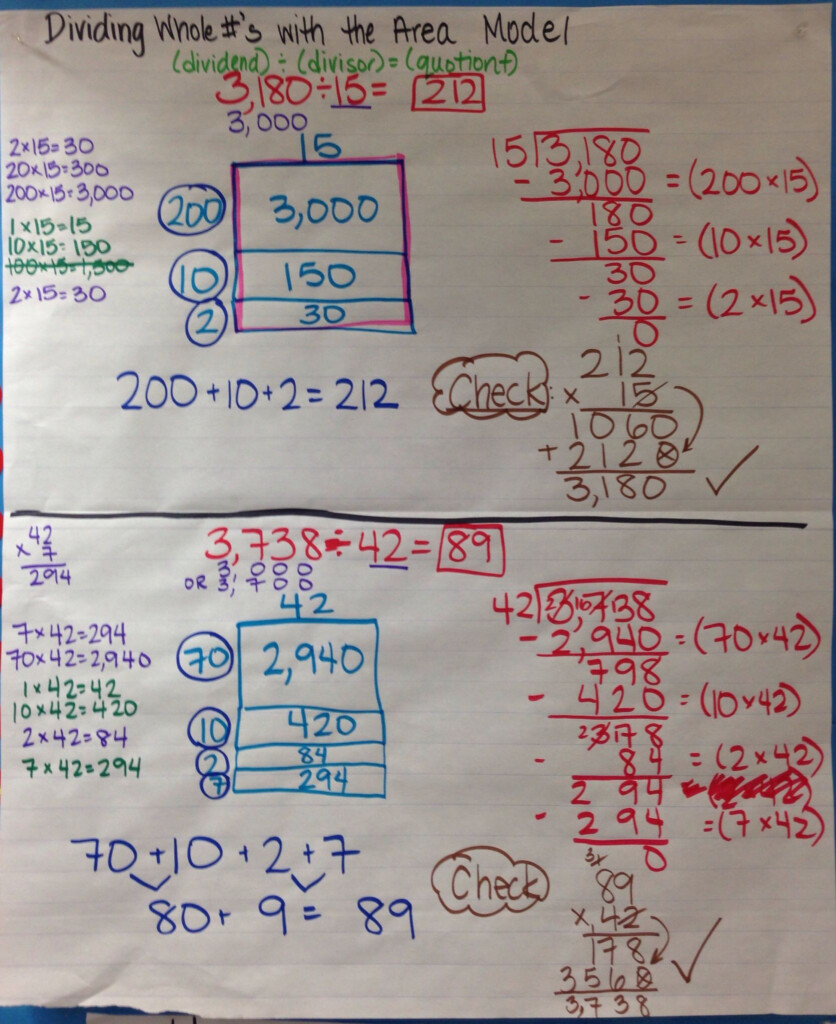 Dividing Whole #'s with the Area Model
(dividend) ÷ (divisor) = (quotient)
3,180 ÷ 15 = 212
3,000
2×15=30
20×15=300
200×15=3,000
1×15=15
10×15=150
100×15=1,500
2×15=30
15
200 3,000
10 150
2 30
200+10+2=212
15 3,180
- 3,000 = (200×15)
180
- 150 = (10×15)
30
- 30 = (2×15)
0
Check:
1
212
× 15
1060
+ 2120
3,180 ✓
3,738 ÷ 42 = 89
3,000
OR 3,700
42
× 7
294
7×42=294
70×42=2,940
1×42=42
10×42=420
2×42=84
7×42=294
42
70 2,940
10 420
2 84
7 294
70+10+2+7
80+ 9 = 89
42 3,738
- 2,940 = (70×42)
798
- 420 = (10×42)
378
- 84 = (2×42)
294
- 294 = (7×42)
0
Check
89
× 42
178
3560
3,738 ✓